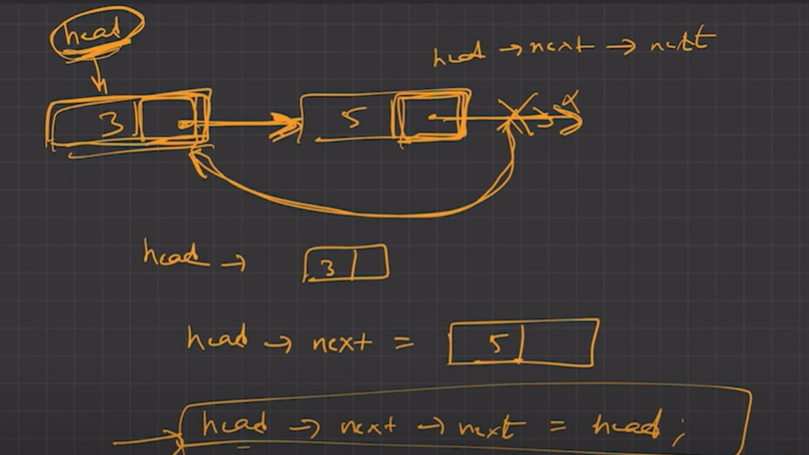 head
head → next → next
3 5
head → 3
head → next = 5
head → next → next = head;